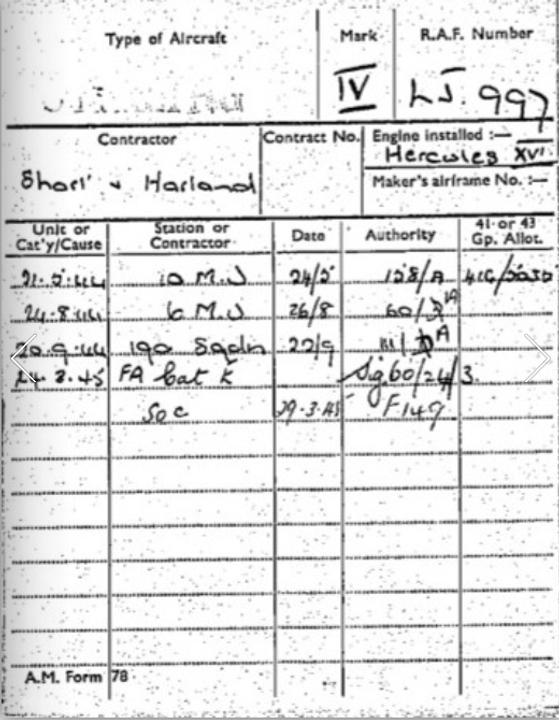 Type of Aircraft Mark R.A.F. Number
IV LJ. 997
Contractor Contract No. Engine installed :—
Hercules XVI
Short & Harland Maker's airframe No. :—
Unit or Cat'y/Cause Station or Contractor Date Authority 41 or 43 Gp. Allot.
21.5.44 10 M.U 24/5 128/A 41G/
24.8.44 6 M.U 26/8 60/
20.9.44 190 Sqdn 22/9
24.3.45 FA Cat E Sig 60/24/3.
Soc 29.3.45 F149
A.M. Form 78